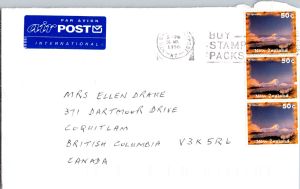 PAR AVION
air POST
INTERNATIONAL
1996
BUY
STAMP
PACKS
50c
New Zealand
50c
New Zealand
50c
New Zealand
MRS ELLEN DRAKE
371 DARTMOUR DRIVE
COQUITLAM
BRITISH COLUMBIA V3K5RL
CANADA